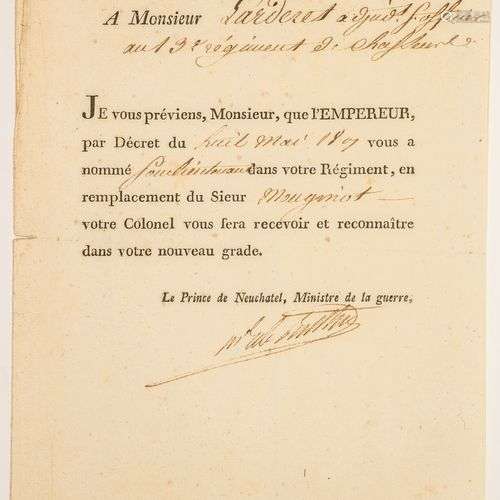 A Monsieur Larderet adjudt. s. officier
au 13e. régiment de chasseurs
JE vous préviens, Monsieur, que l'EMPEREUR,
par Décret du huit Mai 1807 vous a
nommé Souslieutenant dans votre Régiment, en
remplacement du Sieur Mougenot
votre Colonel vous fera recevoir et reconnaître
dans votre nouveau grade.
Le Prince de Neuchatel, Ministre de la guerre,